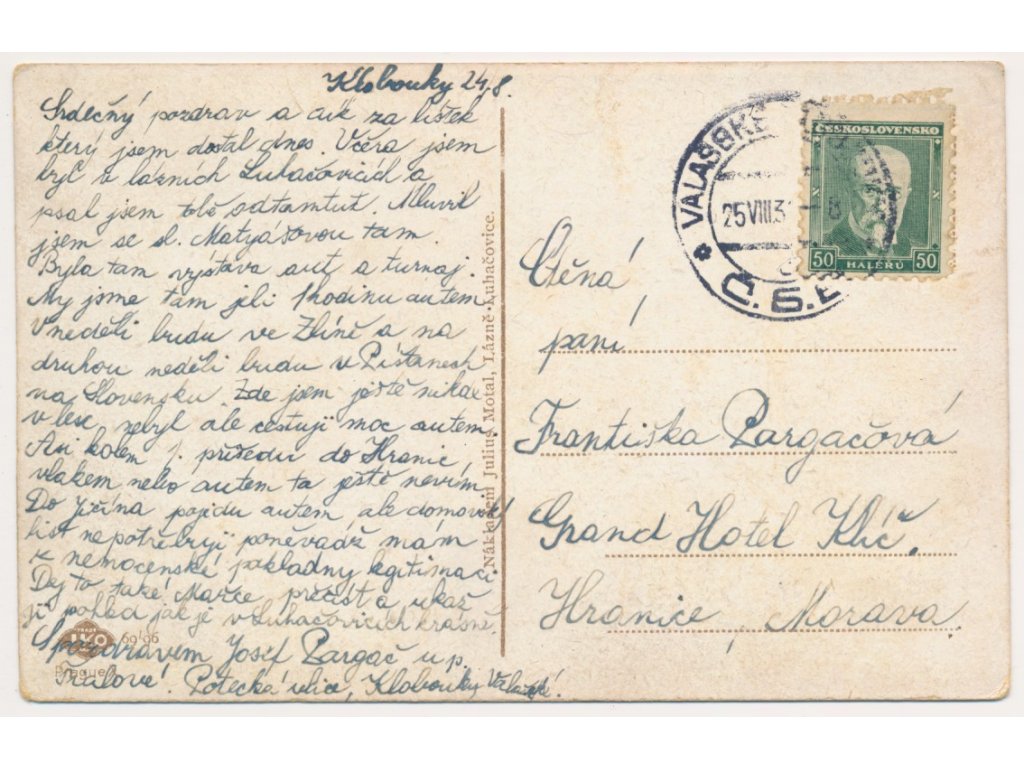 Klobouky 24.8.
Srdečný pozdrav a dík za lístek
který jsem dostal dnes. Včera jsem
byl v lázních Luhačovicích a
psal jsem tobě odtamtut. Mluvil
jsem se sl. Matyášovou tam.
Byla tam výstava aut a turnaj.
My jsme tam jeli 1 hodinu autem
V neděli budu ve Zlíně a na
druhou neděli budu v Píšťanech
na Slovensku. Zde jsem ještě nikde
v lese nebyl ale cestuji moc autem.
Asi kolem 1. přijedu do Hranic,
vlakem nebo autem to ještě nevím
Do Jičína pojdu autem ale domovský
list nepotřebuji poněvadž mám
z nemocenské pokladny legitimaci
Dej to také Mařce přečíst a ukaž
jí pohled jak je v Luhačovicích krásně.
S pozdravem Josef Pargač u p.
Potecká ulice, Klobouky Valašské.
Nákladem Julius Motal, Lázně-Luhačovice.
TRADE
6996
Prague
VALAŠSKÉ
25 VIII 3
Č.S.
ČESKOSLOVENSKO
50 HALÉŘŮ 50
Ctěná
paní
Františka Pargačová
Grand Hotel Klíč,
Hranice, Morava.